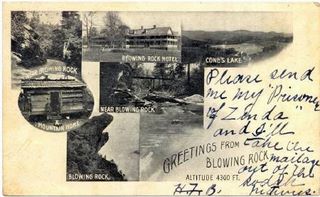 NEAR BLOWING ROCK
BLOWING ROCK HOTEL
CONE'S LAKE
A MOUNTAIN HOME
NEAR BLOWING ROCK
BLOWING ROCK
GREETINGS FROM
BLOWING ROCK
ALTITUDE 4300 FT.
Please send
me my "Prisoner
of Zenda
and I'll
take the
mailage
out of the
pictures.
H.F.B.